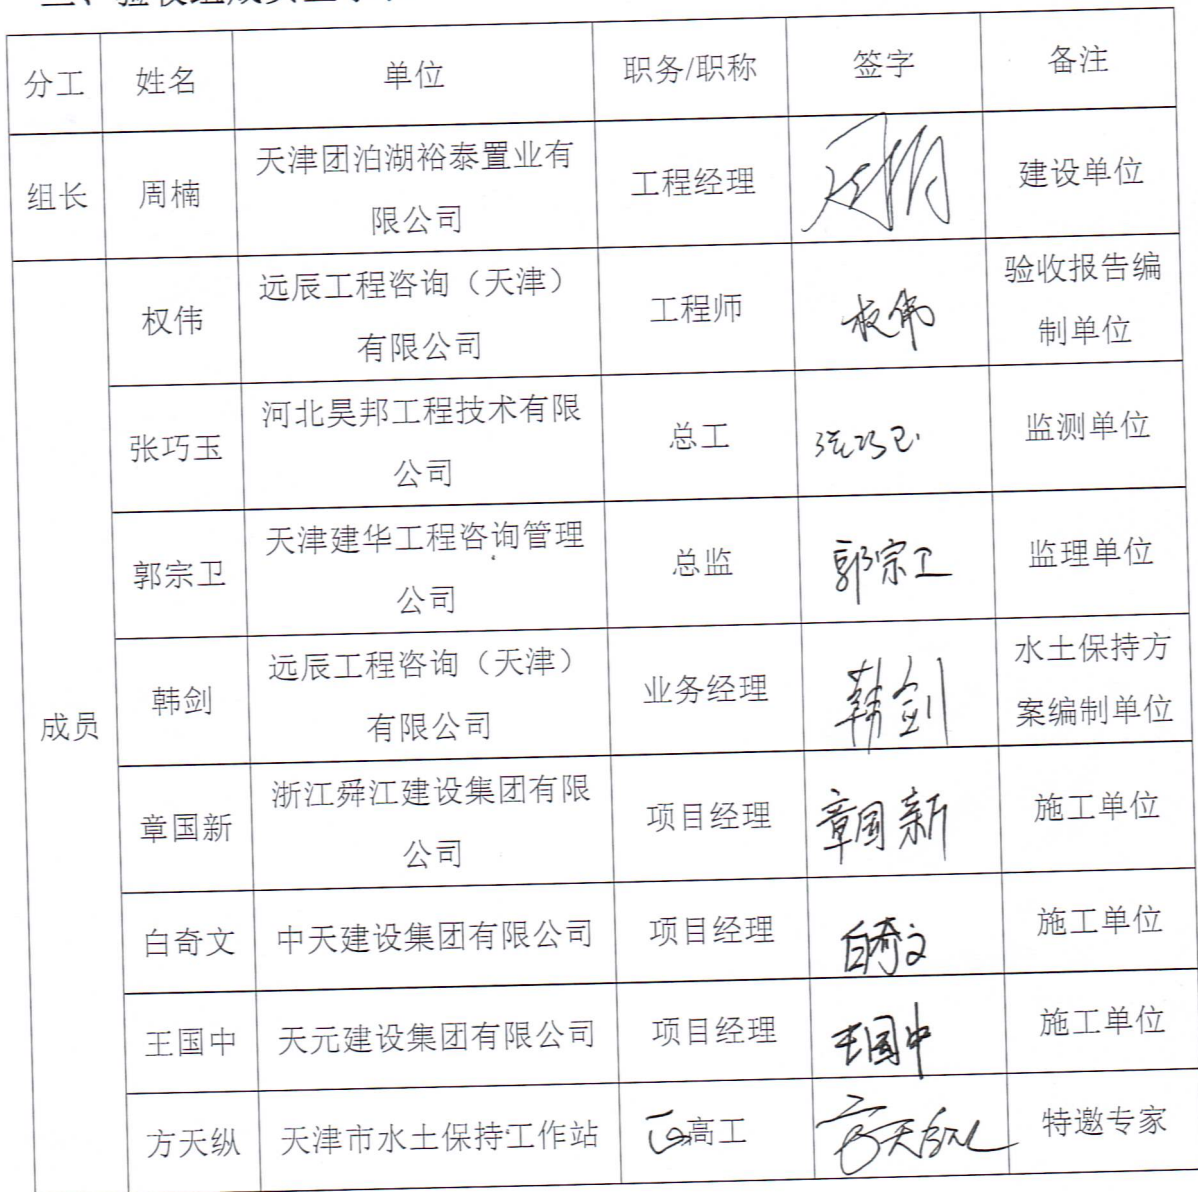 分工 姓名 单位 职务/职称 签字 备注
组长 周楠 天津团泊湖裕泰置业有 工程经理 周楠 建设单位
限公司
成员
权伟 远辰工程咨询（天津） 工程师 权伟 验收报告编
有限公司 制单位
张巧玉 河北昊邦工程技术有限 总工 张巧玉 监测单位
公司
郭宗卫 天津建华工程咨询管理 总监 郭宗卫 监理单位
公司
韩剑 远辰工程咨询（天津） 业务经理 韩剑 水土保持方
有限公司 案编制单位
章国新 浙江舜江建设集团有限 项目经理 章国新 施工单位
公司
白奇文 中天建设集团有限公司 项目经理 白奇文 施工单位
王国中 天元建设集团有限公司 项目经理 王国中 施工单位
方天纵 天津市水土保持工作站 正高工 方天纵 特邀专家